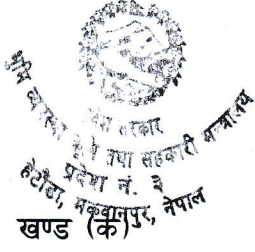 भूमि व्यवस्था, कृषि तथा सहकारी मन्त्रालय
प्रदेश सरकार
प्रदेश नं. ३
हेटौंडा, मकवानपुर, नेपाल
खण्ड (क)